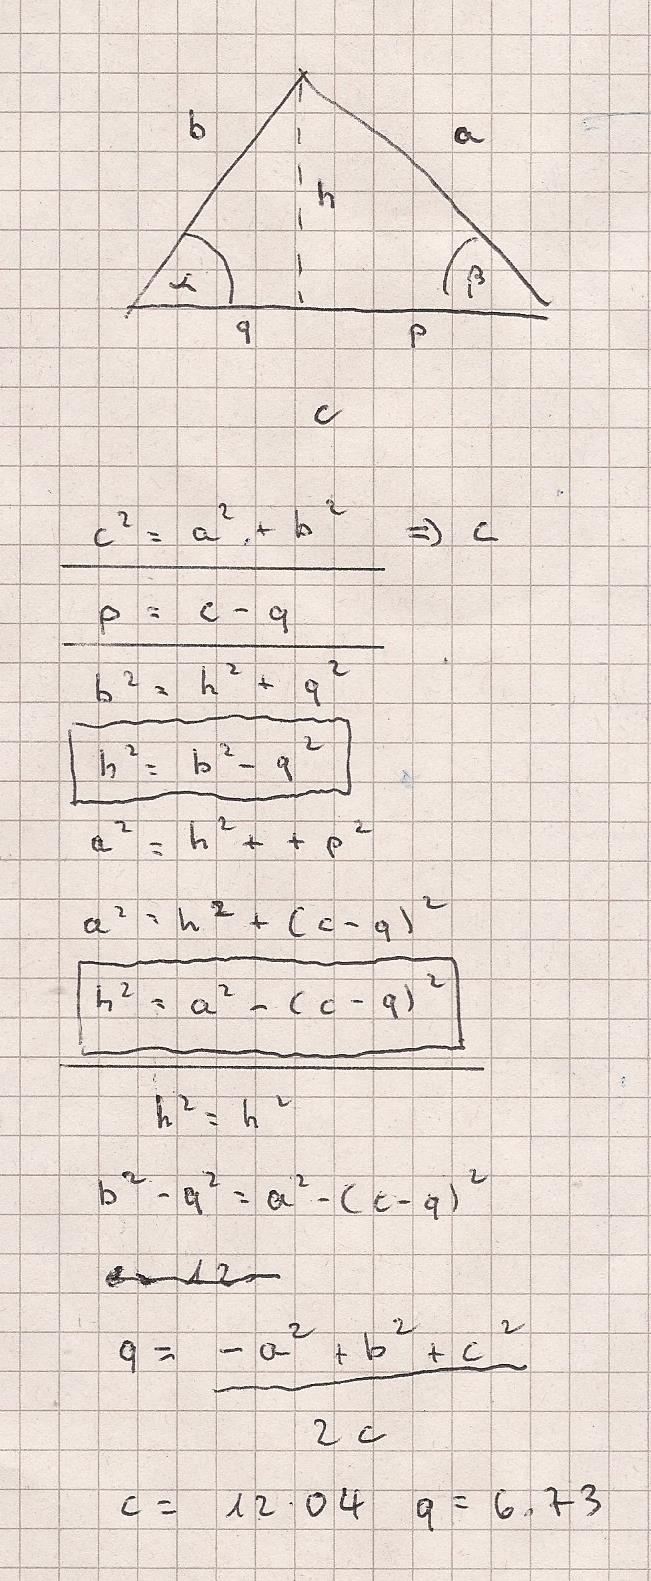 b a
h
α β
q p
c
c² = a² + b² => c
p = c - q
b² = h² + q²
h² = b² - q²
a² = h² + + p²
a² = h² + (c - q)²
h² = a² - (c - q)²
h² = h²
b² - q² = a² - (c - q)²
12
q = -a² + b² + c²
2c
c = 12.04 q = 6.73